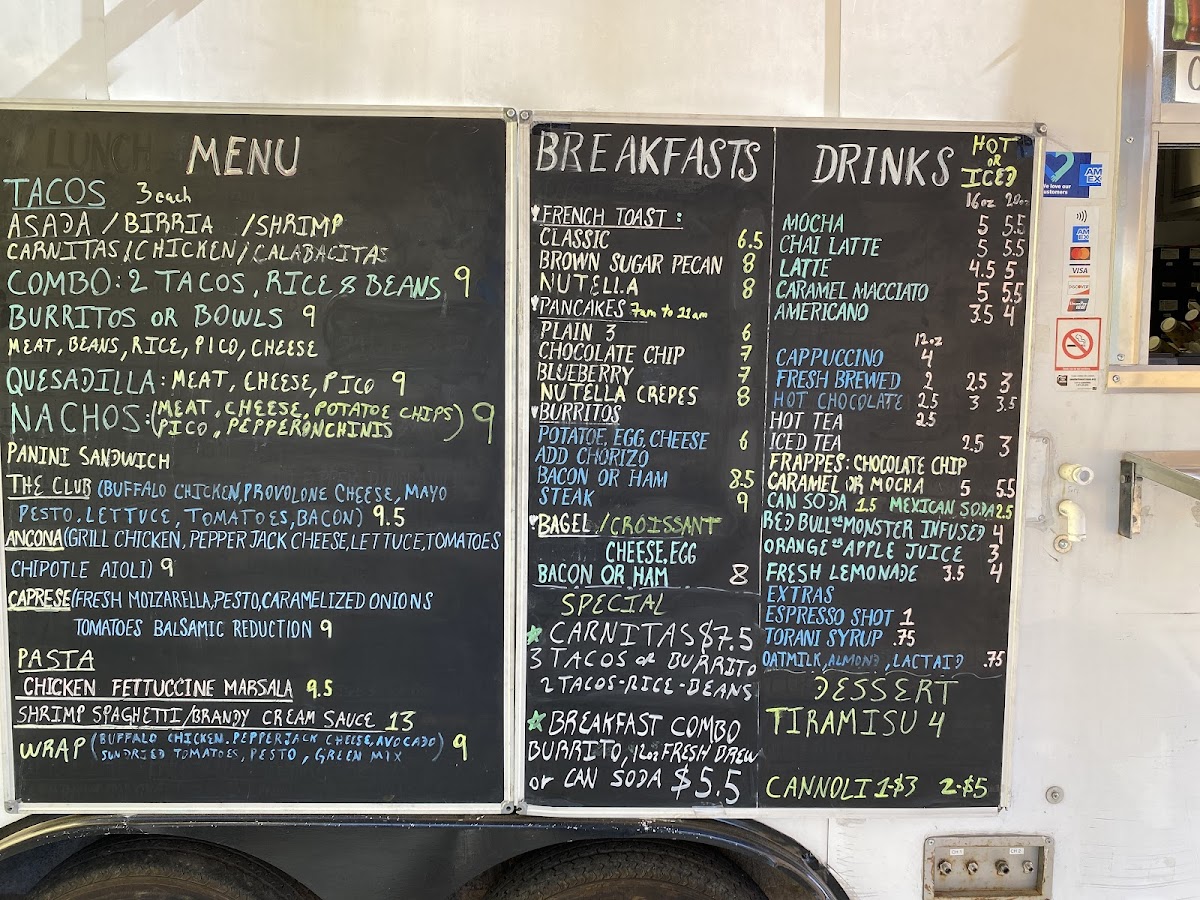 LUNCH MENU
TACOS 3 each
ASADA / BIRRIA / SHRIMP
CARNITAS / CHICKEN / CALABACITAS
COMBO: 2 TACOS, RICE & BEANS 9
BURRITOS OR BOWLS 9
MEAT, BEANS, RICE, PICO, CHEESE
QUESADILLA: MEAT, CHEESE, PICO 9
NACHOS: (MEAT, CHEESE, POTATOE CHIPS) 9
PICO, PEPPERONCHINIS
PANINI SANDWICH
THE CLUB (BUFFALO CHICKEN, PROVOLONE CHEESE, MAYO
PESTO, LETTUCE, TOMATOES, BACON) 9.5
ANCONA (GRILL CHICKEN, PEPPER JACK CHEESE, LETTUCE, TOMATOES
CHIPOTLE AIOLI) 9
CAPRESE (FRESH MOZZARELLA, PESTO, CARAMELIZED ONIONS
TOMATOES BALSAMIC REDUCTION 9
PASTA
CHICKEN FETTUCCINE MARSALA 9.5
SHRIMP SPAGHETTI/BRANDY CREAM SAUCE 13
WRAP (BUFFALO CHICKEN, PEPPERJACK CHEESE, AVOCADO) 9
SUNDRIED TOMATOES, PESTO, GREEN MIX
BREAKFASTS
FRENCH TOAST:
CLASSIC 6.5
BROWN SUGAR PECAN 8
NUTELLA 8
PANCAKES 7am to 11am
PLAIN 3 6
CHOCOLATE CHIP 7
BLUEBERRY 7
NUTELLA CREPES 8
BURRITOS
POTATOE, EGG, CHEESE 6
ADD CHORIZO
BACON OR HAM 8.5
STEAK 9
BAGEL / CROISSANT
CHEESE, EGG
BACON OR HAM 8
SPECIAL
CARNITAS $7.5
3 TACOS or BURRITO
2 TACOS-RICE-BEANS
BREAKFAST COMBO
BURRITO, 12oz FRESH BREW
or CAN SODA $5.5
DRINKS HOT or ICED
16oz 20oz
MOCHA 5 5.5
CHAI LATTE 5 5.5
LATTE 4.5 5
CARAMEL MACCIATO 5 5.5
AMERICANO 3.5 4
12oz
CAPPUCCINO 4
FRESH BREWED 2 2.5 3
HOT CHOCOLATE 2.5 3 3.5
HOT TEA 2.5
ICED TEA 2.5 3
FRAPPES: CHOCOLATE CHIP
CARAMEL OR MOCHA 5 5.5
CAN SODA 1.5 MEXICAN SODA 2.5
RED BULL or MONSTER INFUSED 4
ORANGE or APPLE JUICE 3
FRESH LEMONADE 3.5 4
EXTRAS
ESPRESSO SHOT 1
TORANI SYRUP .75
OATMILK, ALMOND, LACTAID .75
DESSERT
TIRAMISU 4
CANNOLI 1-$3 2-$5
We love our customers
AM EX
AM EX
VISA
DISCOVER